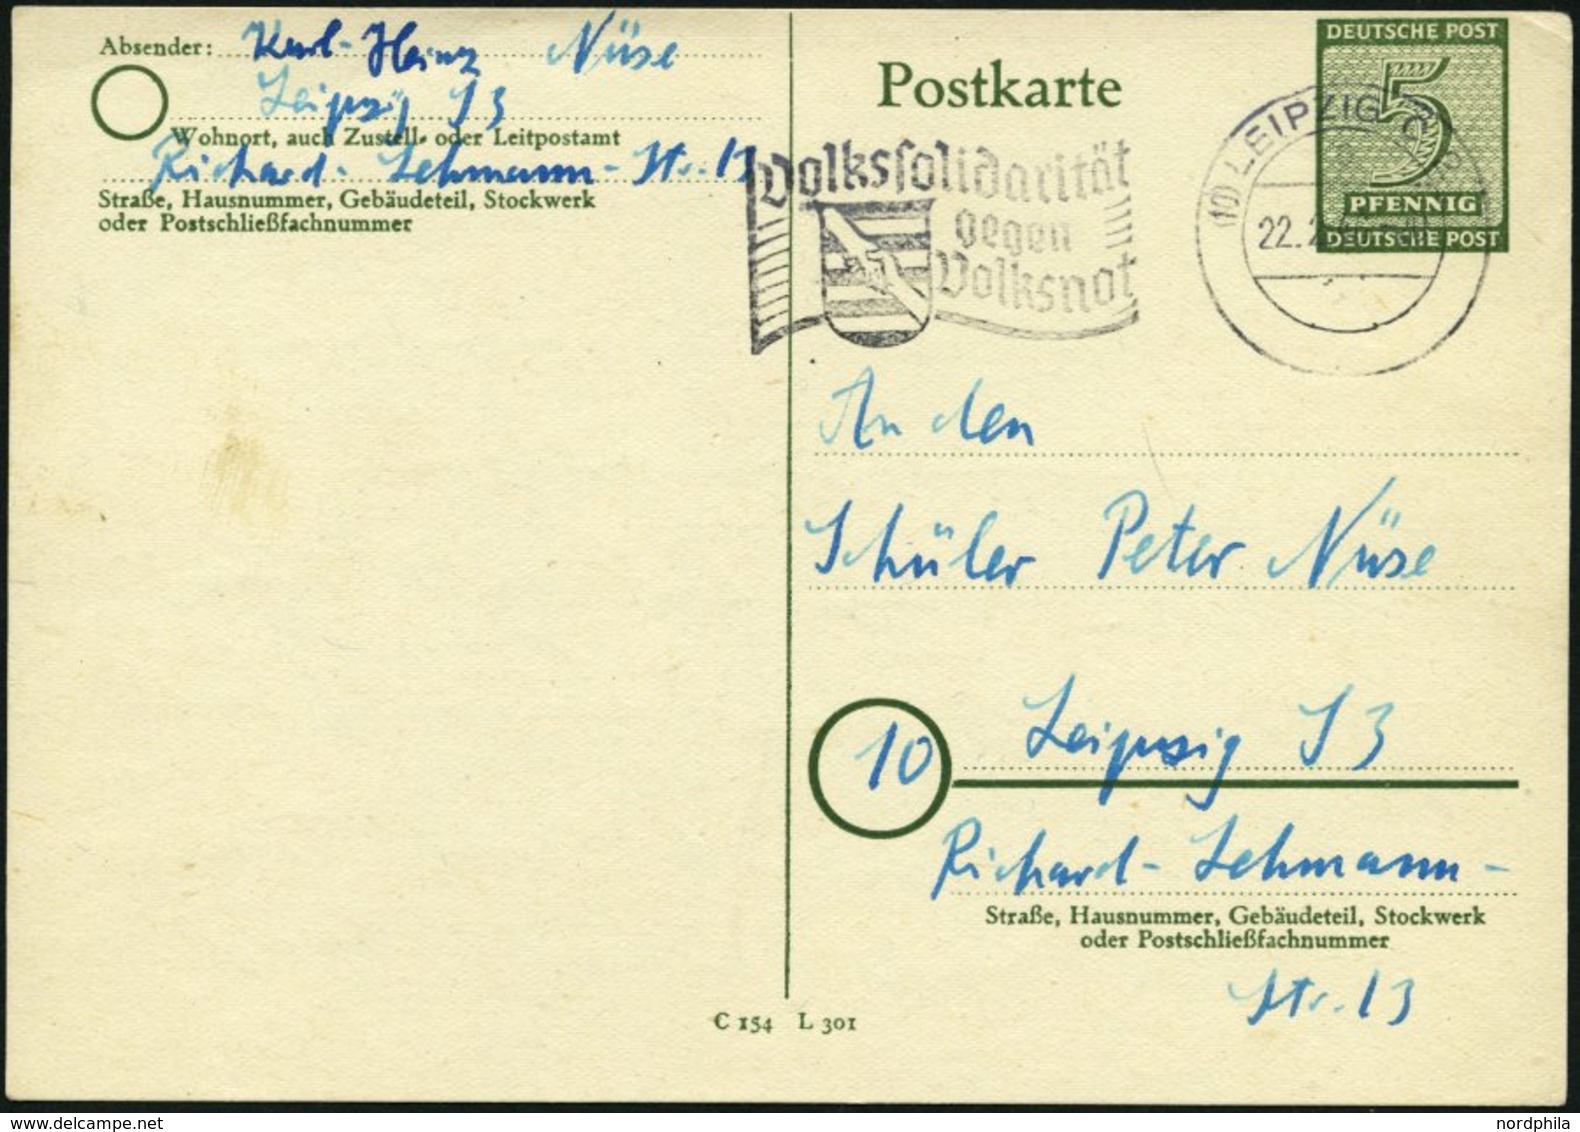 Absender: Karl-Heinz Nüse
Leipzig S3
Wohnort, auch Zustell- oder Leitpostamt
Richard-Lehmann-Str. 13
Straße, Hausnummer, Gebäudeteil, Stockwerk
oder Postschließfachnummer
Postkarte
DEUTSCHE POST
5
PFENNIG
DEUTSCHE POST
Volkssolidarität
gegen
Volksnot
(10) LEIPZIG
22.2
An den
Schüler Peter Nüse
10
Leipzig S3
Richard-Lehmann-
Straße, Hausnummer, Gebäudeteil, Stockwerk
oder Postschließfachnummer
Str. 13
C 154 L 301
nordphila